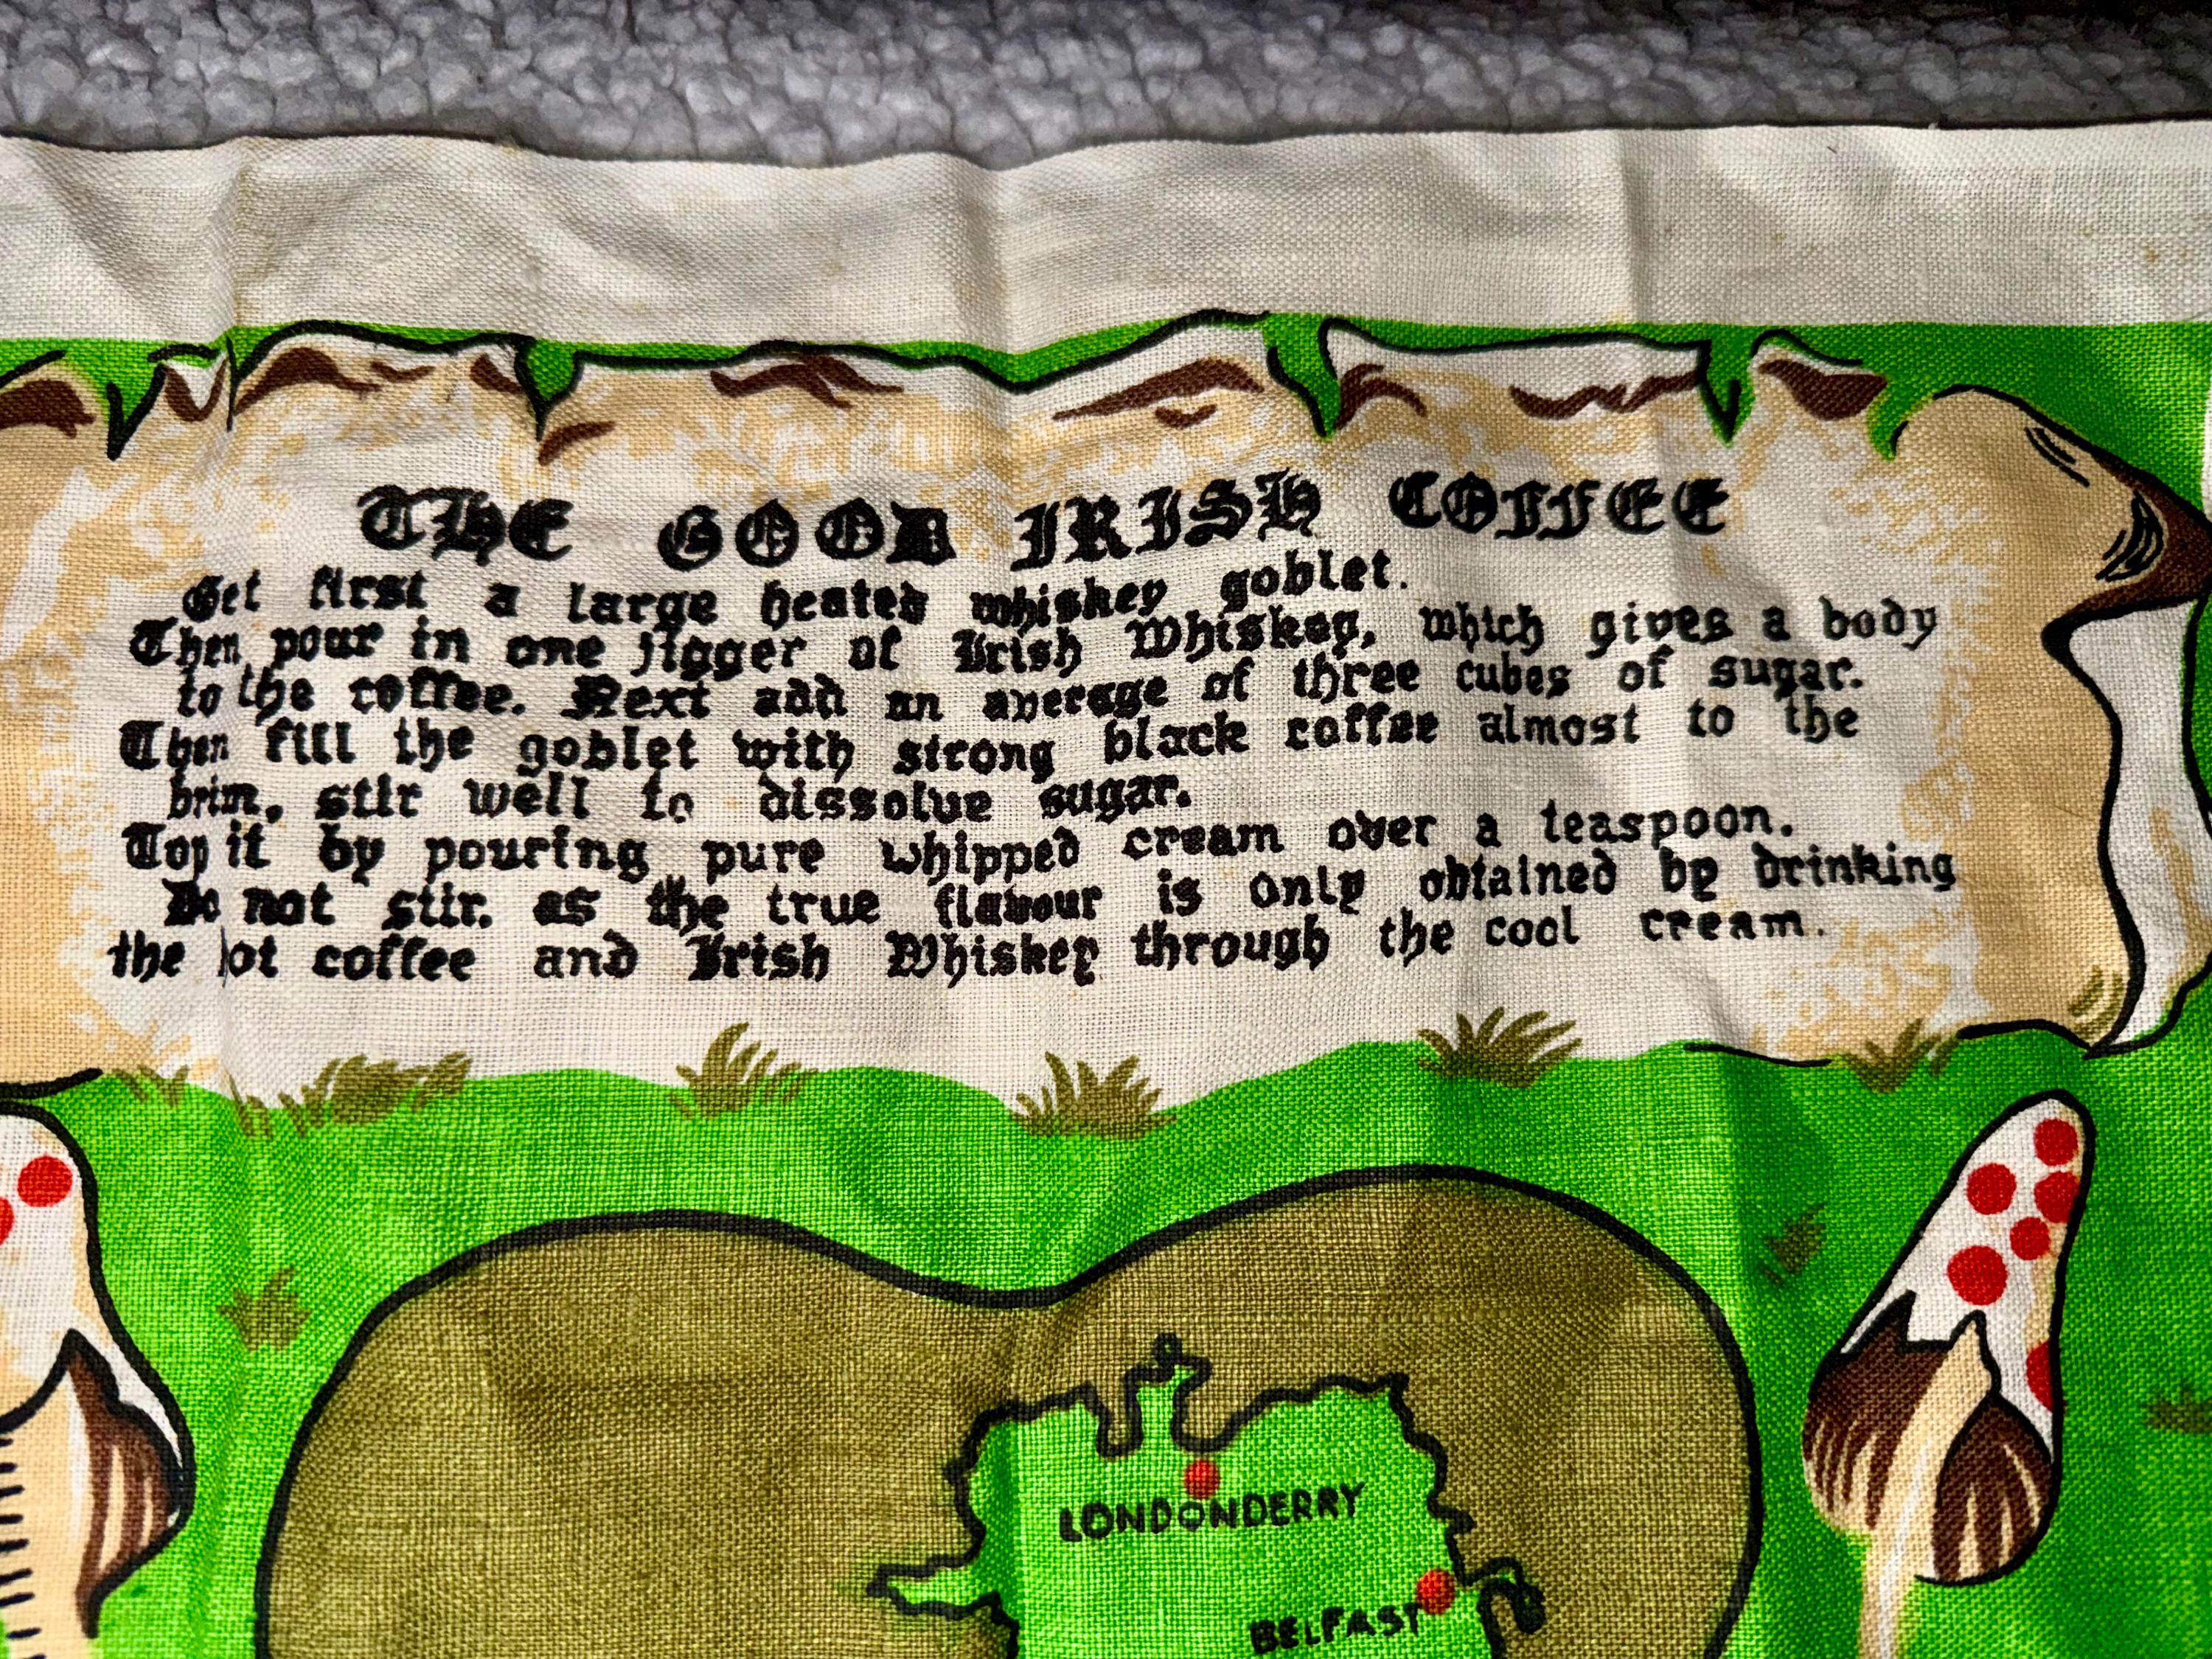 THE GOOD IRISH COFFEE
Get first a large heated whiskey goblet.
Then pour in one jigger of Irish Whiskey, which gives a body
to the coffee. Next add an average of three cubes of sugar.
Then fill the goblet with strong black coffee almost to the
brim, stir well to dissolve sugar.
Top it by pouring pure whipped cream over a teaspoon.
Do not stir. as the true flavour is only obtained by drinking
the hot coffee and Irish Whiskey through the cool cream.
LONDONDERRY
BELFAST